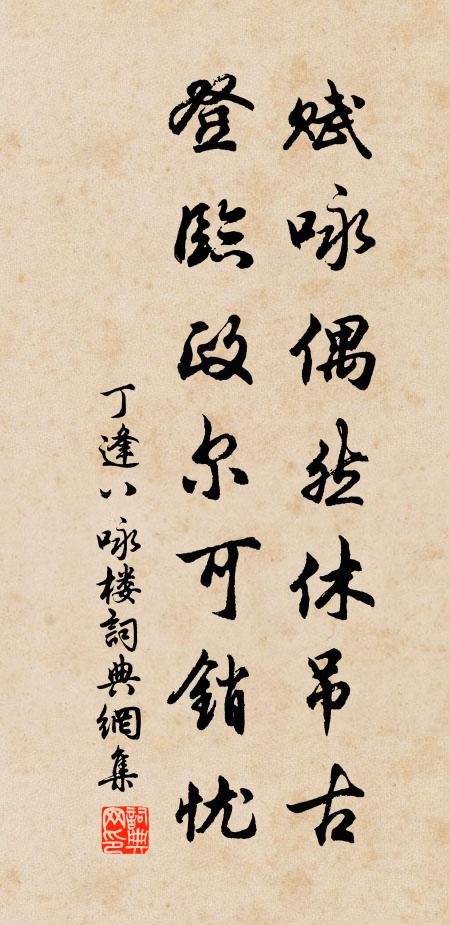 赋咏偶然休吊古
登临政尔可销忧
丁逢八咏楼詞典網集
詞典
网印